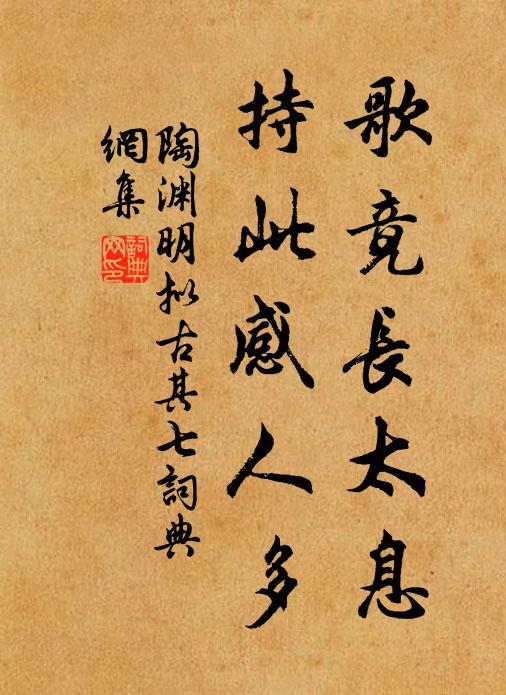 歌竟長太息
持此感人多
陶渊明拟古其七詞典
網集
詞典
网印